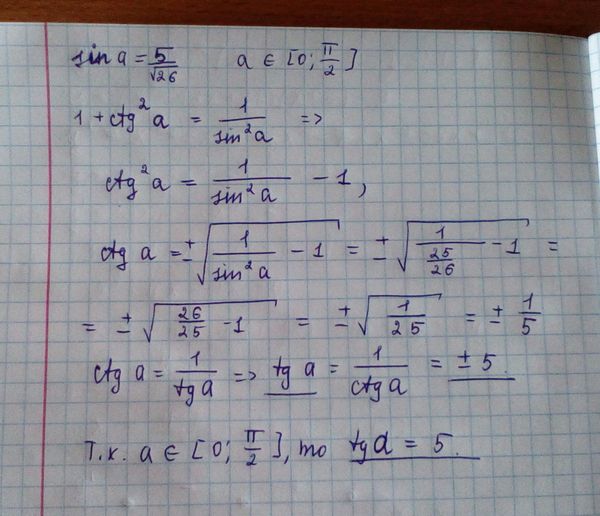 sin a = 5/√26   a ∈ [0; π/2]
1 + ctg²a = 1/sin²a =>
ctg²a = 1/sin²a - 1,
ctg a = ±√(1/sin²a - 1) = ±√(1/(25/26) - 1) =
= ±√(26/25 - 1) = ±√(1/25) = ±1/5
ctg a = 1/tg a => tg a = 1/ctg a = ±5.
Т.к. a ∈ [0; π/2], то tg a = 5.